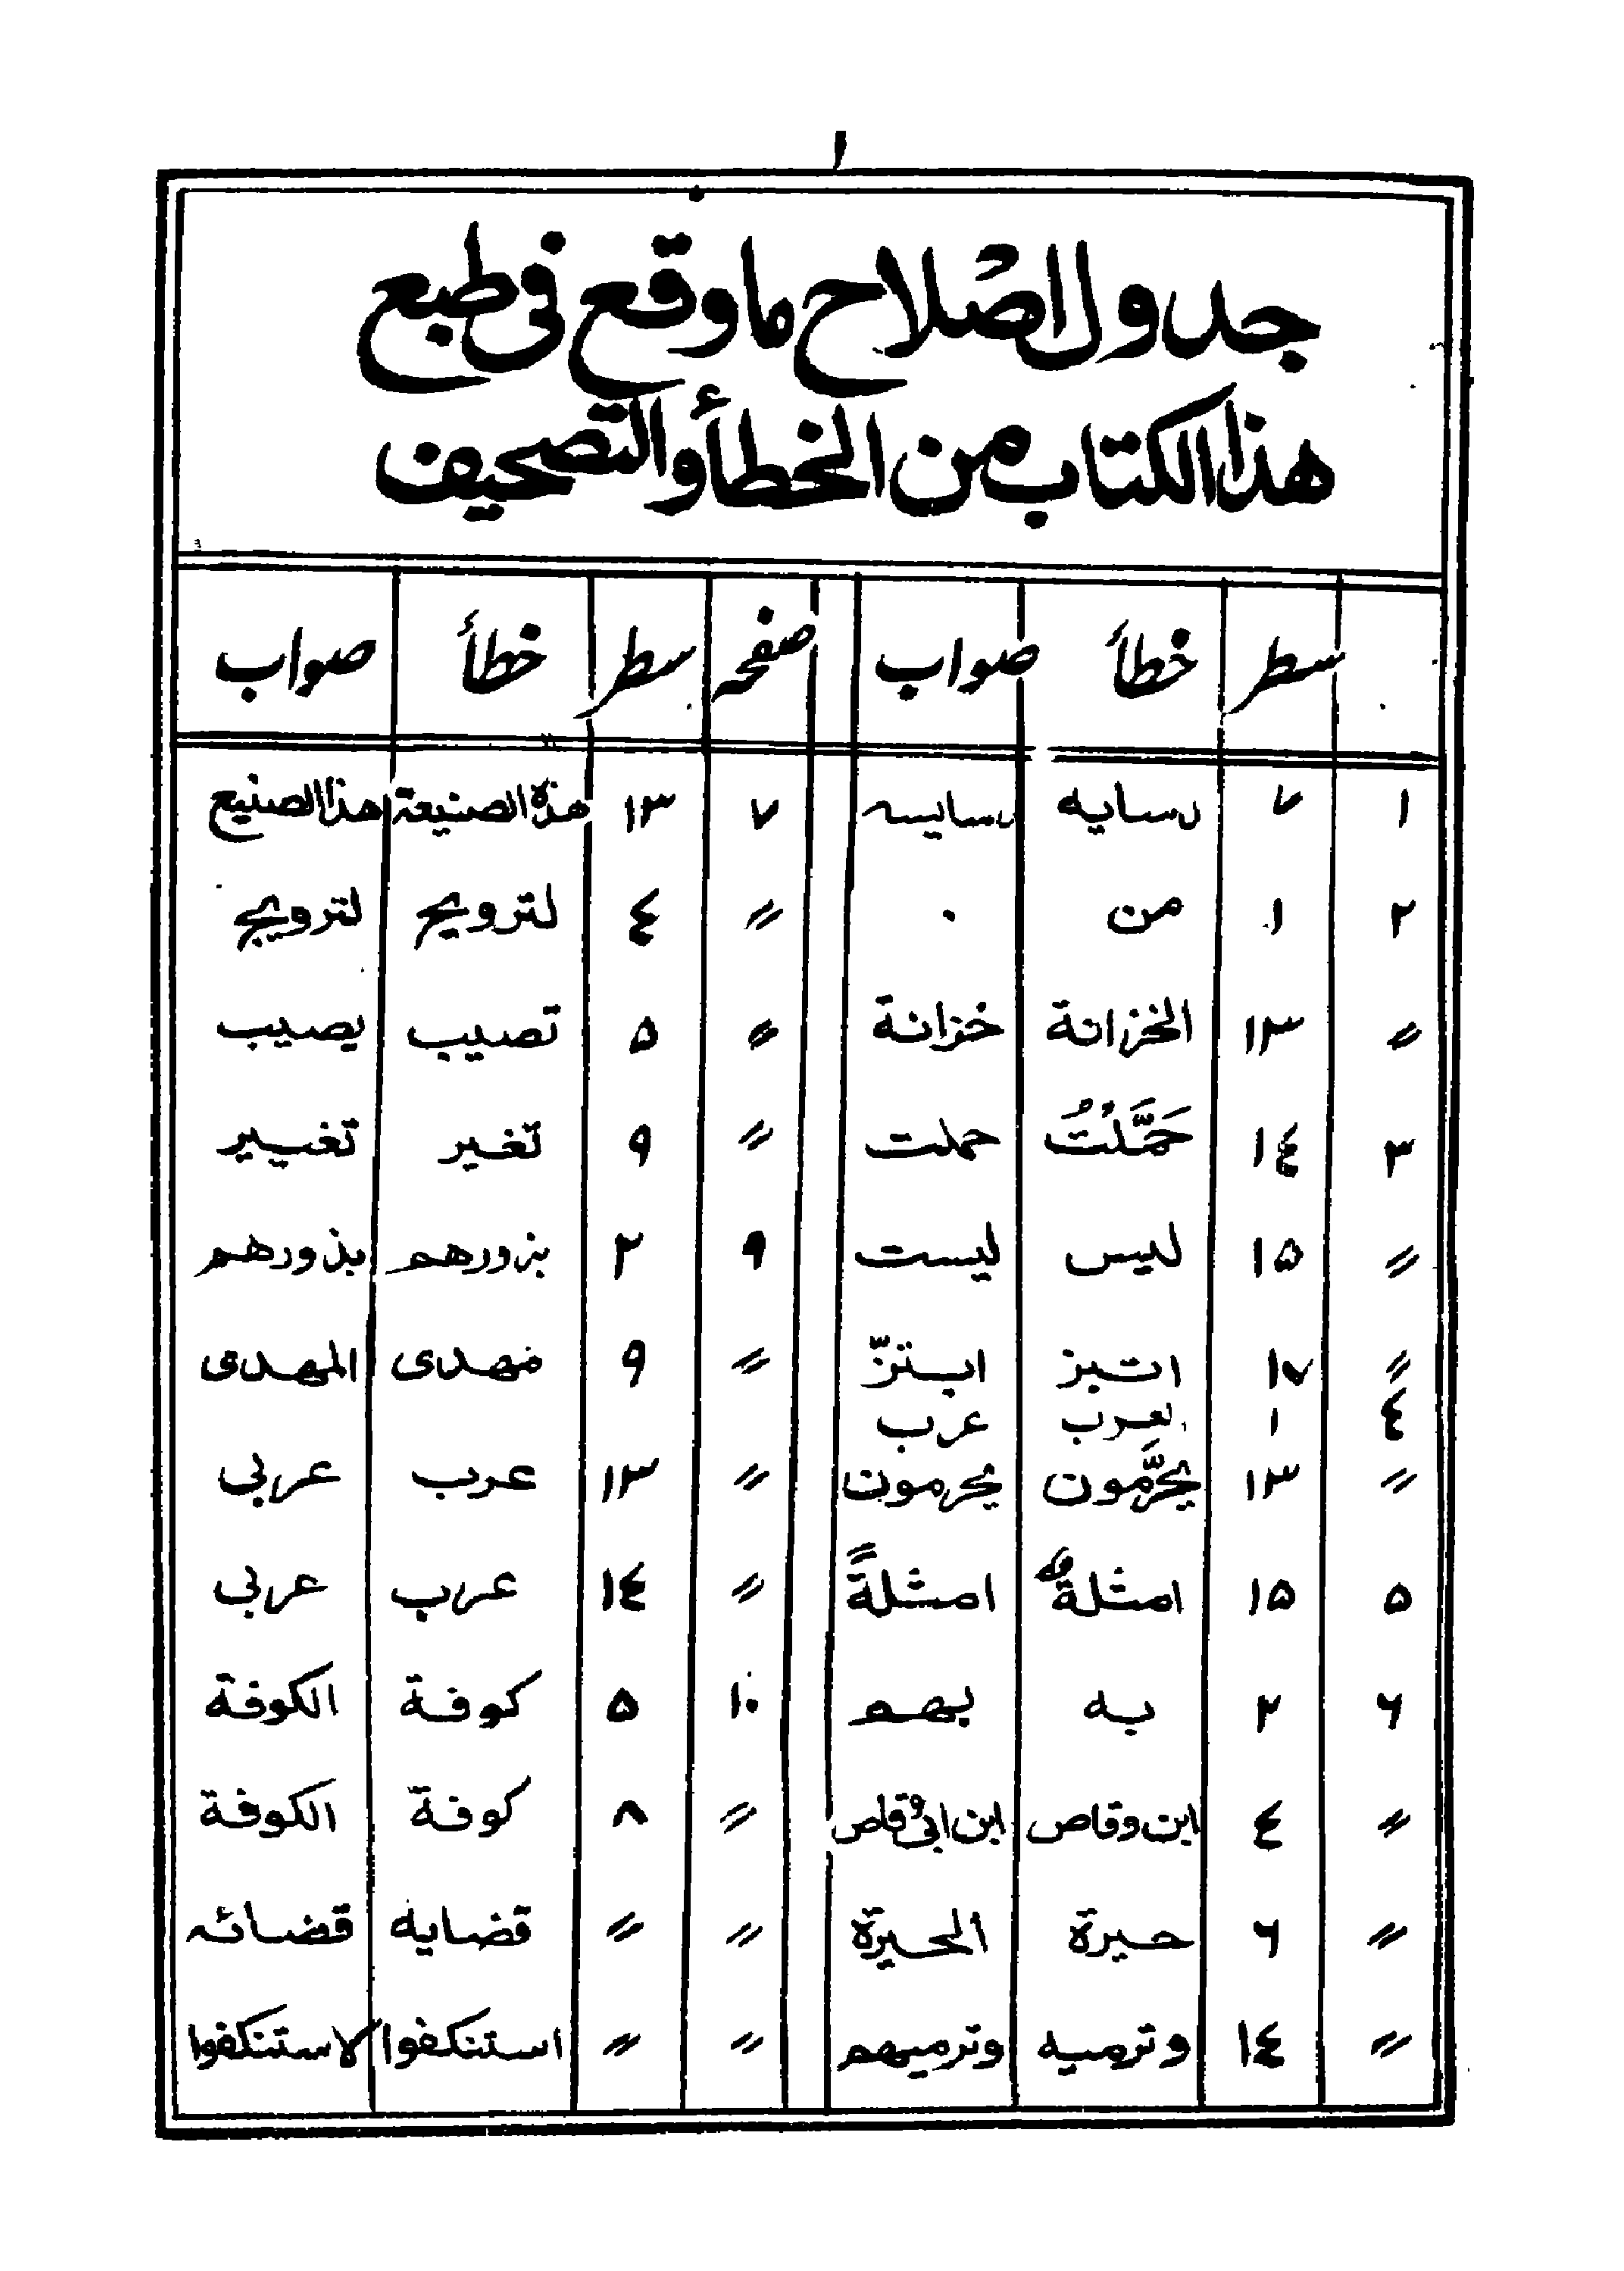 ١
جدول اصلاح ما وقع فى طبع
هذا الكتاب من الخطأ والتصحيف
سطر خطأ صواب صفحه سطر خطأ صواب
١ ٧ دسايه دسايسه ٧ ١٣ هذه الصنيعة هذا الصنيع
٢ ١ من ٠ 〃 ٤ لترويح لترويج
〃 ١٣ الخزانة خزانة 〃 ٥ تصيب يصيب
٣ ١٤ حَمَّلْتُ حملت 〃 ٩ تغير تغيير
〃 ١٥ ليس ليست ٩ ٢ بزورهم بذورهم
〃 ١٧ اتبز ابتزّ 〃 ٩ مهدى المهدى
٤ ١ لعرب عرب
〃 ١٣ يحرَّمون يحرمون 〃 ١٣ عرب عربي
٥ ١٥ امثلة امثلةً 〃 ١٤ عرب عربي
٦ ٢ به بهم ١٠ ٥ كوفة الكوفة
〃 ٤ ابن وقاص ابن ابى وقاص 〃 ٨ كوفة الكوفة
〃 ٦ حيرة الحيرة 〃 〃 قضايه قضائه
〃 ١٤ وترميه وترميهم 〃 〃 استنكفوا لاستنكفوا